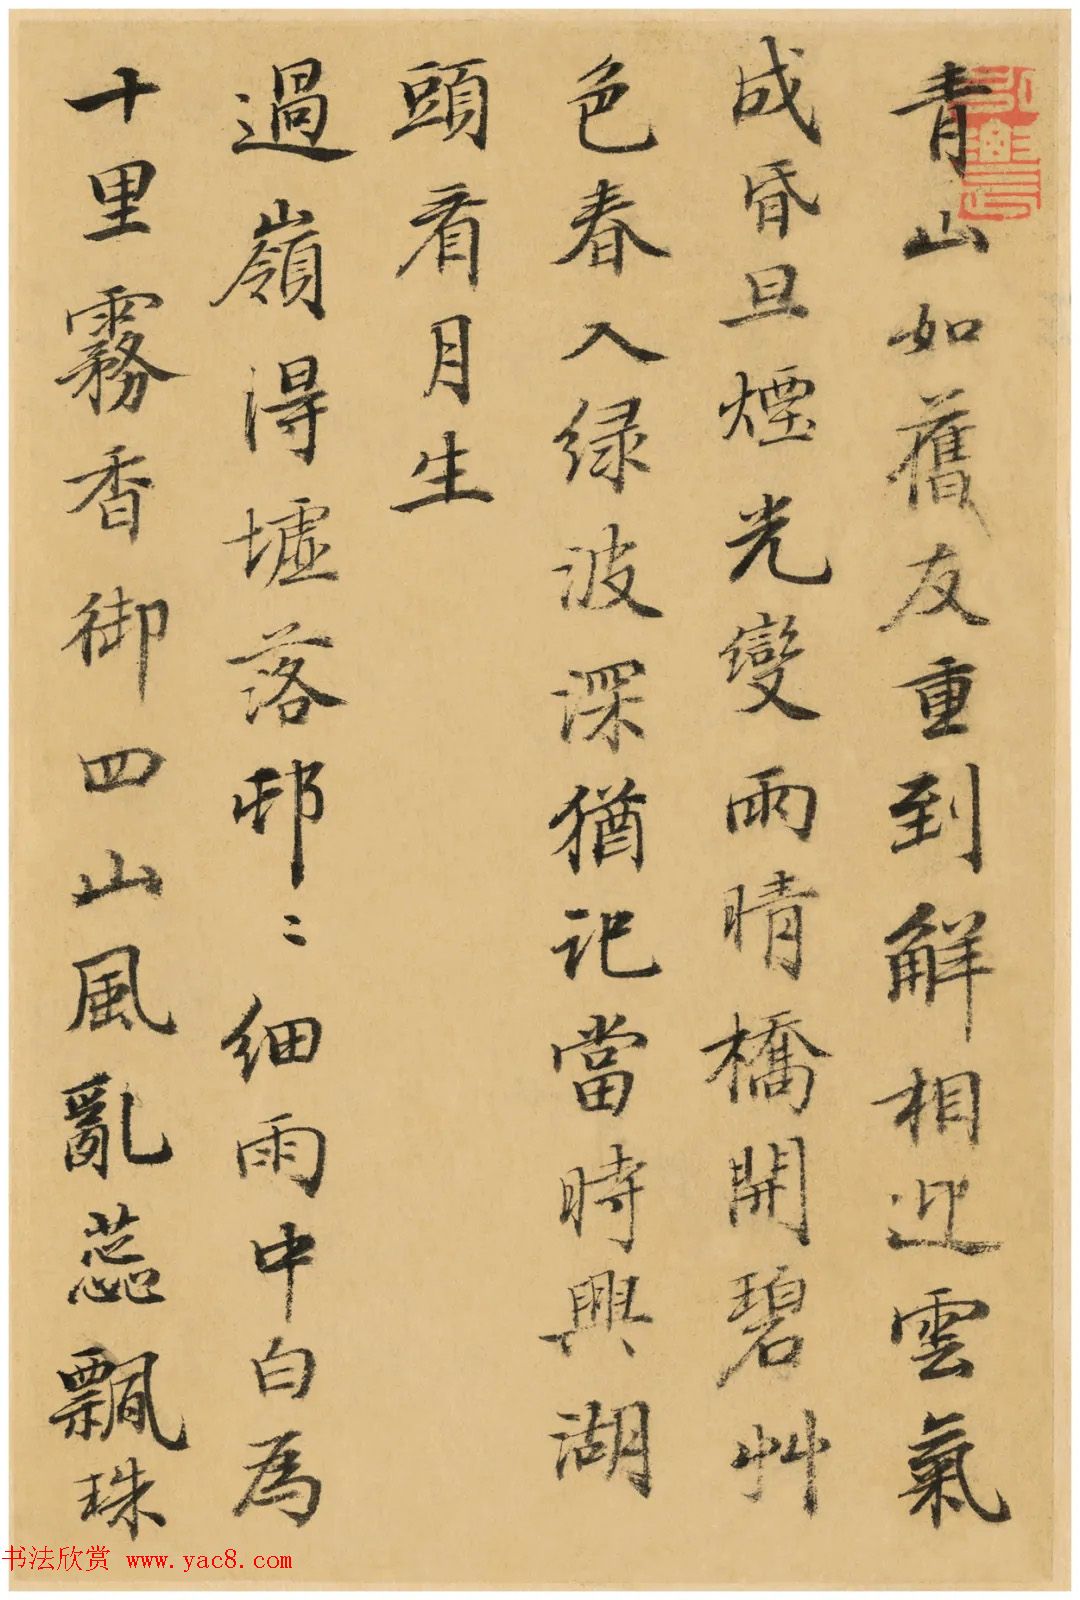 青山如舊友重到解相迎雲氣
成昏旦煙光變雨晴橋開碧艸
色春入緑波深猶記當時興湖
頭看月生
過嶺得墟落邨〻細雨中白為
十里霧香御四山風亂蕊飄珠
书法欣赏 www.yac8.com